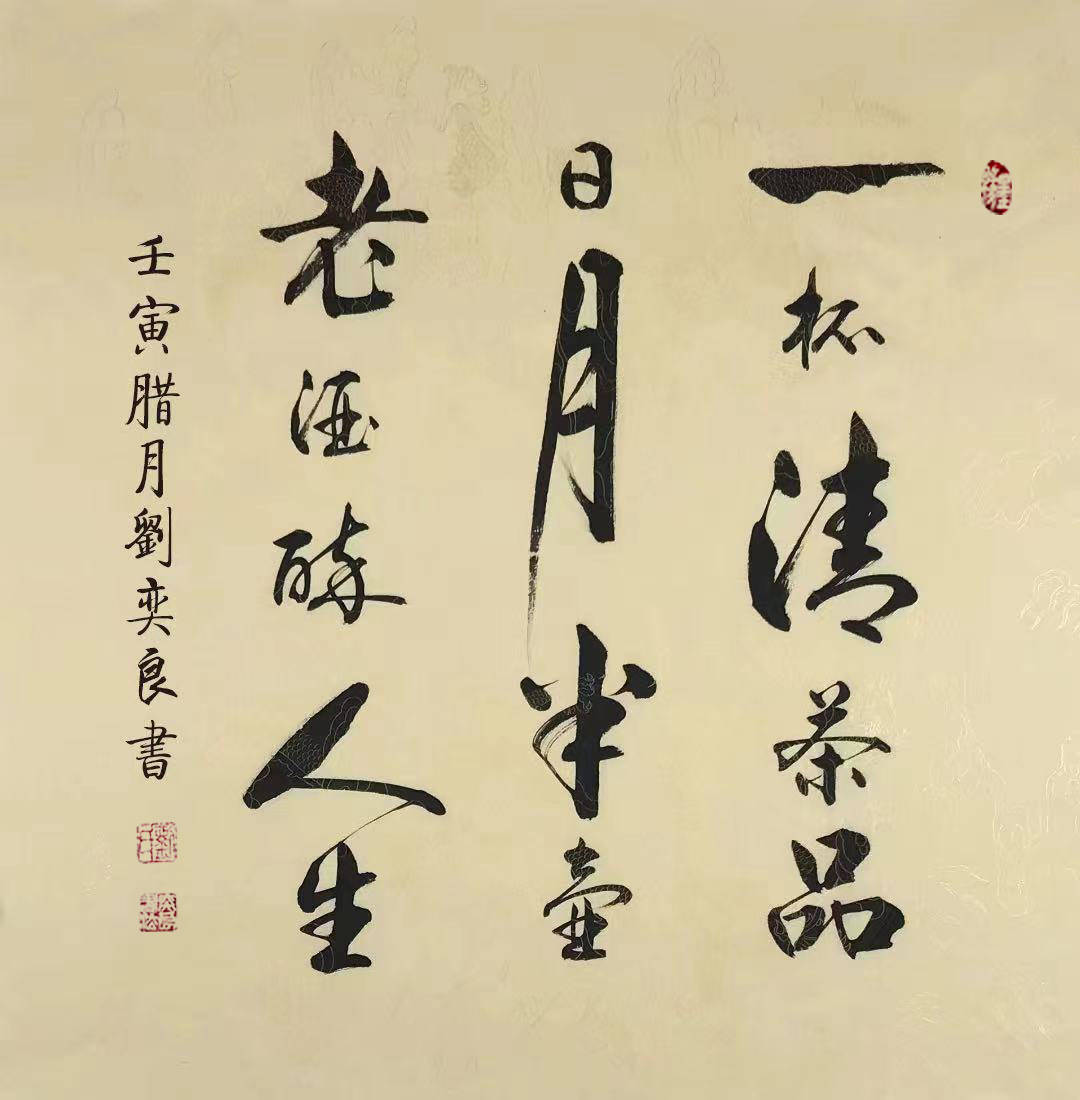 一杯清茶品
日月半壶
老酒醉人生
壬寅腊月劉奕良書